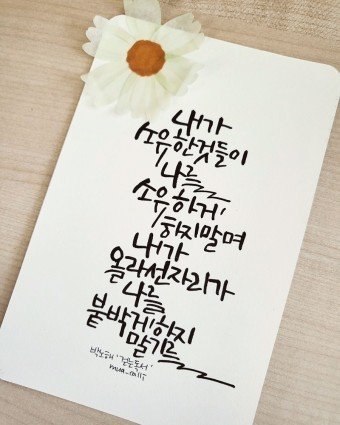 내가
소유한것들이
나를
소유하게
하지말며
내가
올라선자리가
나를
붙박게하지
말기를
박노해 '걷는독서'